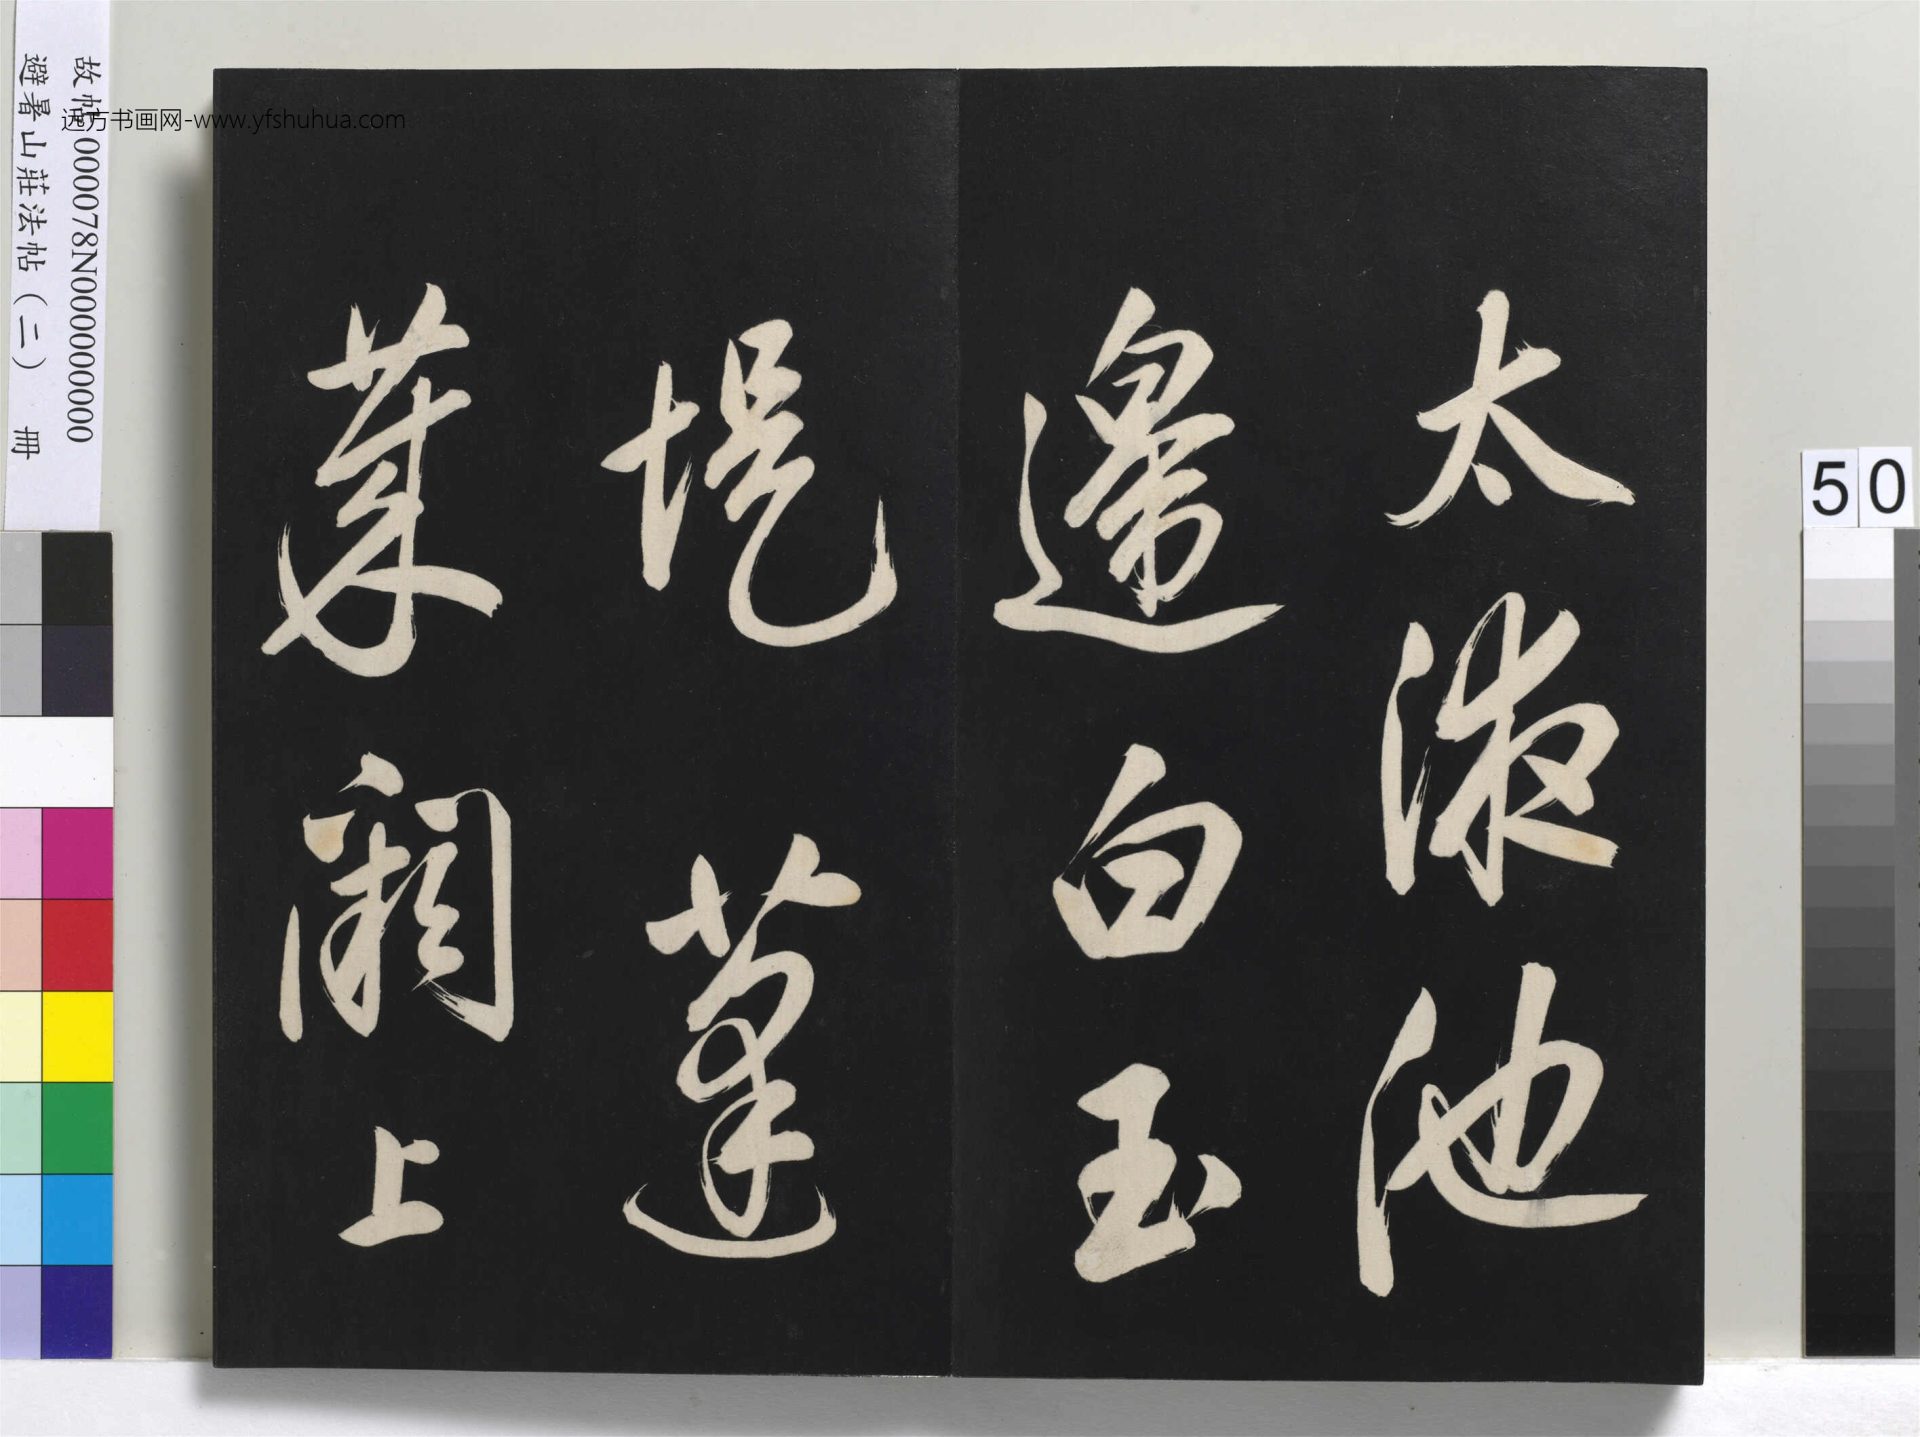 太液池
邊白玉
堤蓬
萊闕上
故帖000078N000000000
避暑山莊法帖(二) 冊
远方书画网-www.yfshuhua.com
50